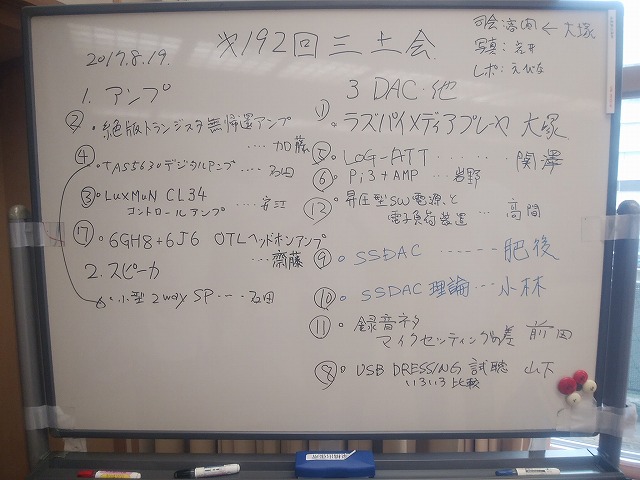 2017.8.19.
第192回三土会
司会 高間 ← 大塚
写真:
レポ:えびな
1. アンプ
② ・絶版トランジスタ無帰還アンプ
‥‥加藤
④ ・TAS5630デジタルアンプ ‥‥石田
③ ・LUXMAN CL34
コントロールアンプ ‥‥安江
⑦ ・6GH8+6J6 OTLヘッドホンアンプ
‥‥齋藤
2. スピーカ
・小型2way SP ‥‥石田
3 DAC・他
① ・ラズパイメディアプレーヤ 大塚
⑤ ・LOG-ATT ‥‥‥ 関澤
⑥ ・Pi3+AMP ‥‥ 岩野
⑫ ・昇圧型SW電源と
電子負荷装置 ‥‥ 高間
⑨ ・SSDAC ------ 肥後
⑩ ・SSDAC理論‥‥小林
⑪ ・録音ネタ
マイクセッティングの差 前田
⑧ ・USB DRESSING 試聴 山下
いろいろ比較